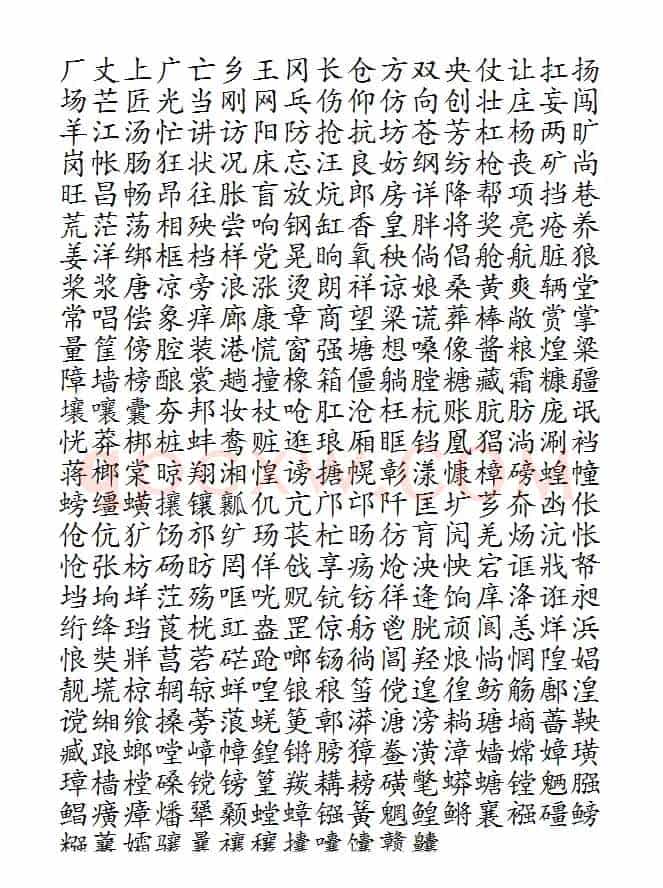 厂丈上广亡乡王冈长仓方双央仗让扛扬
场芒匠光当刚网乓伤仰仿向创壮庄妄闯
羊江汤忙讲访阳防抢抗坊苍芳杠杨两旷
岗帐肠狂状况床忘汪良妨纲纺枪丧矿尚
旺昌畅昂往胀盲放炕郎房详降帮项挡巷
荒茫荡相殃尝响钢缸香皇胖将奖亮疮养
姜洋绑框档样党晃晌氧秧倘倡舱航脏狼
桨浆唐凉旁浪涨烫朗祥谅娘桑黄爽辆堂
常唱偿象痒廊康章商望梁谎葬棒敞赏掌
量筐傍腔装港慌窗强塘想嗓像酱粮煌粱
障墙榜酿裳趟撞橡箱僵躺膛糖藏霜糠疆
壤嚷囊夯邦妆杖呛肛沧枉杭账肮肪庞氓
恍莽梆桩蚌鸯赃逛琅厢眶铛凰猖淌涮裆
蒋榔棠晾翔湘惶谤搪幌彰漾慷樟磅蝗幢
螃缰蟥攘镶瓤仉亢邝邙阡匡圹芗夼凼伥
伧伉犷饧邡纩玚杗旸彷肓闶羌炀沆怅
怆张枋砀昉罔佯戗享疡炝泱怏宕诓戕帑
垱垧垟茳殇哐咣贶钪钫徉逄饷庠洚诳昶
绗绛珰莨桄豇盎罡倞舫鬯胱颃阆恙烊浜
悢奘牂菖菪硭跄啷铴徜阊羟烺惝惘隍娼
靓塃椋辋辌蛘喤锒稂筜傥遑徨鲂觞鄌湟
谠缃飨搡蒡蒗蜣筼鄣漭溏滂耥瑭墒蔷鞅
臧踉螂嘡嶂幛锽锵膀獐鲞潢漳嫱嫦嫜璜
璋樯樘磉镋镑篁羰耩耪磺氅蟒螗镗魉膙
鲳癀瘴燔犟颡螳蟑镪簧魍鳇鳉襄襁礓鳑